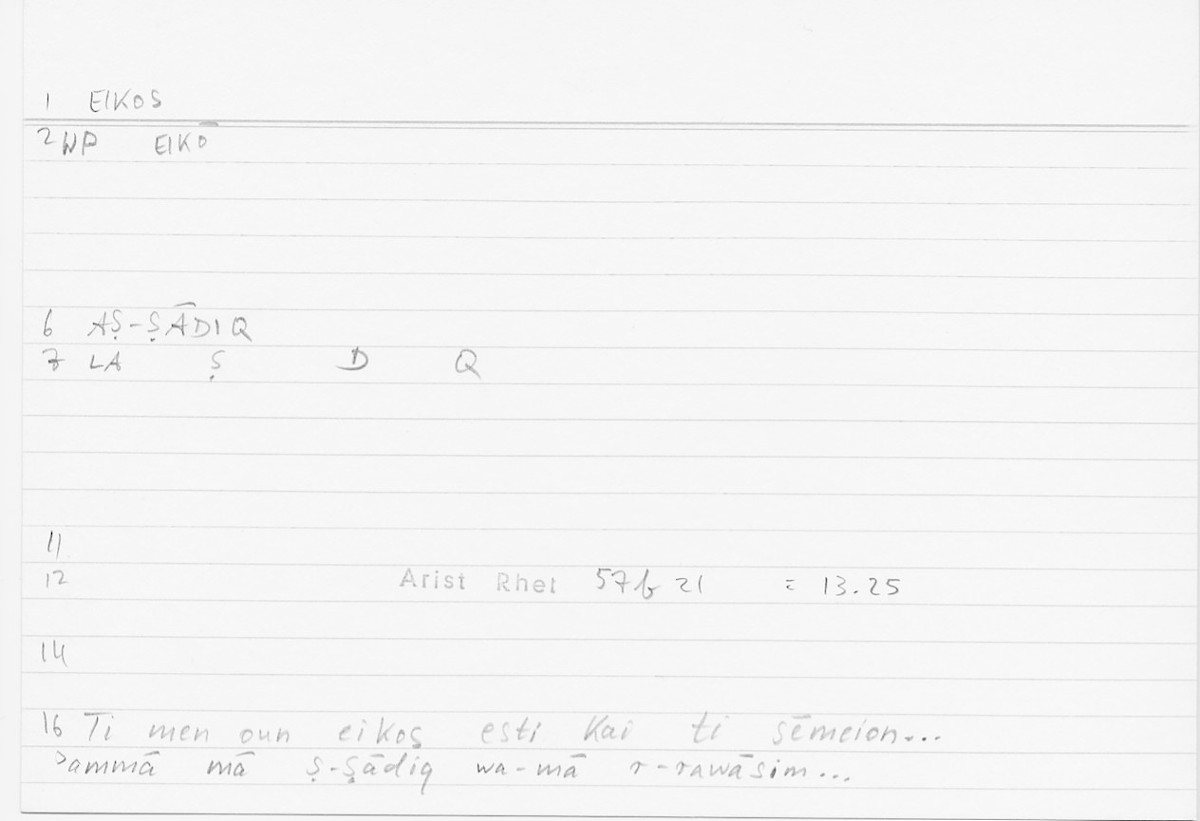 1 EIKOS
2 WP EIKŌ
6 AṢ-ṢĀDIQ
7 LA Ṣ D Q
11
12 Arist Rhet 57b 21 = 13.25
14
16 Ti men oun eikos esti kai ti sēmeion...
ʾammā mā ṣ-ṣādiq wa-mā r-rawāsim...